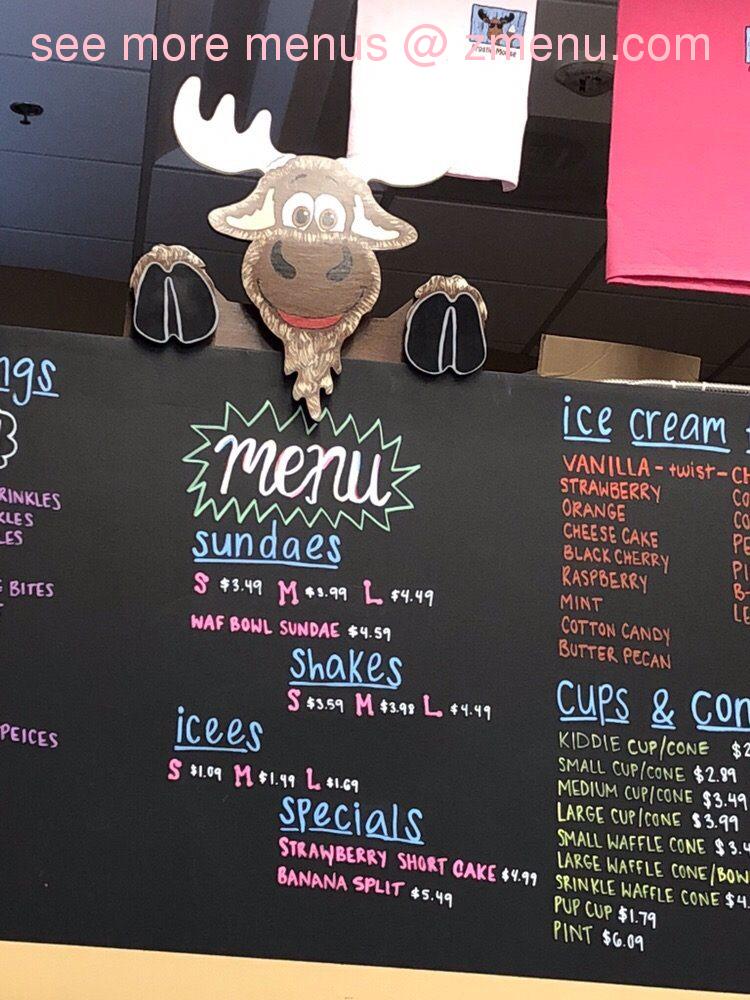 see more menus @ zmenu.com
Frostie Moose
ngs
RINKLES
KLES
LES
BITES
PEICES
menu
sundaes
S $3.49 M $3.99 L $4.49
WAF BOWL SUNDAE $4.59
shakes
S $3.59 M $3.98 L $4.49
icees
S $1.09 M $1.49 L $1.69
specials
STRAWBERRY SHORT CAKE $4.99
BANANA SPLIT $5.49
ice cream
VANILLA - twist - CH
STRAWBERRY
ORANGE
CHEESE CAKE
BLACK CHERRY
RASPBERRY
MINT
COTTON CANDY
BUTTER PECAN
CO
CO
PE
PI
B
LE
CUPS & CON
KIDDIE CUP/CONE $2
SMALL CUP/CONE $2.89
MEDIUM CUP/CONE $3.49
LARGE CUP/CONE $3.99
SMALL WAFFLE CONE $3.4
LARGE WAFFLE CONE/BOW
SRINKLE WAFFLE CONE $4.
PUP CUP $1.79
PINT $6.09